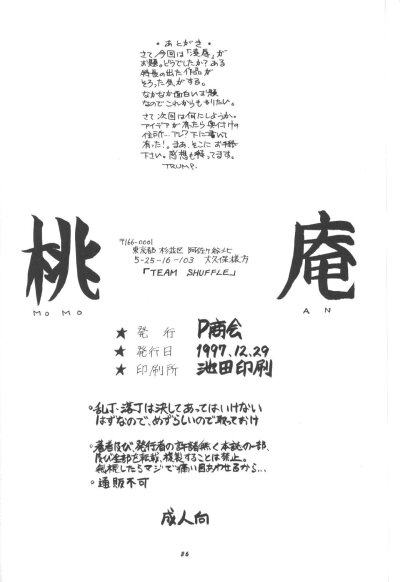 ・あとがき・
さて今回は「浸辱」が
お題。どうでしたか？ある
特長の出た作品が
そろった気がする。
なかなか面白いお題
なのでこれからもやりたい。
さて次回は何にしようか。
アイデアが有ったら奥付けの
住所…アレ？下に書いて
有った！。まあ、そこにお手紙
下さい。感想も待ってます。
TRUMP.
桃
庵
MOMO
AN
〒166-0001
東京都 杉並区 阿佐ヶ谷北
5-25-16-103 大久保様方
「TEAM SHUFFLE」
★ 発行 P商会
★ 発行日 1997.12.29
★ 印刷所 池田印刷
・乱丁・落丁は決してあってはいけない
はずなので、めずらしいので取っておけ
・著者及び、発行者の許諾無く本誌の一部、
及び全部を転載、複製することは禁止。
無視したらマジで痛い目あわせるから…
・通販不可
成人向
86